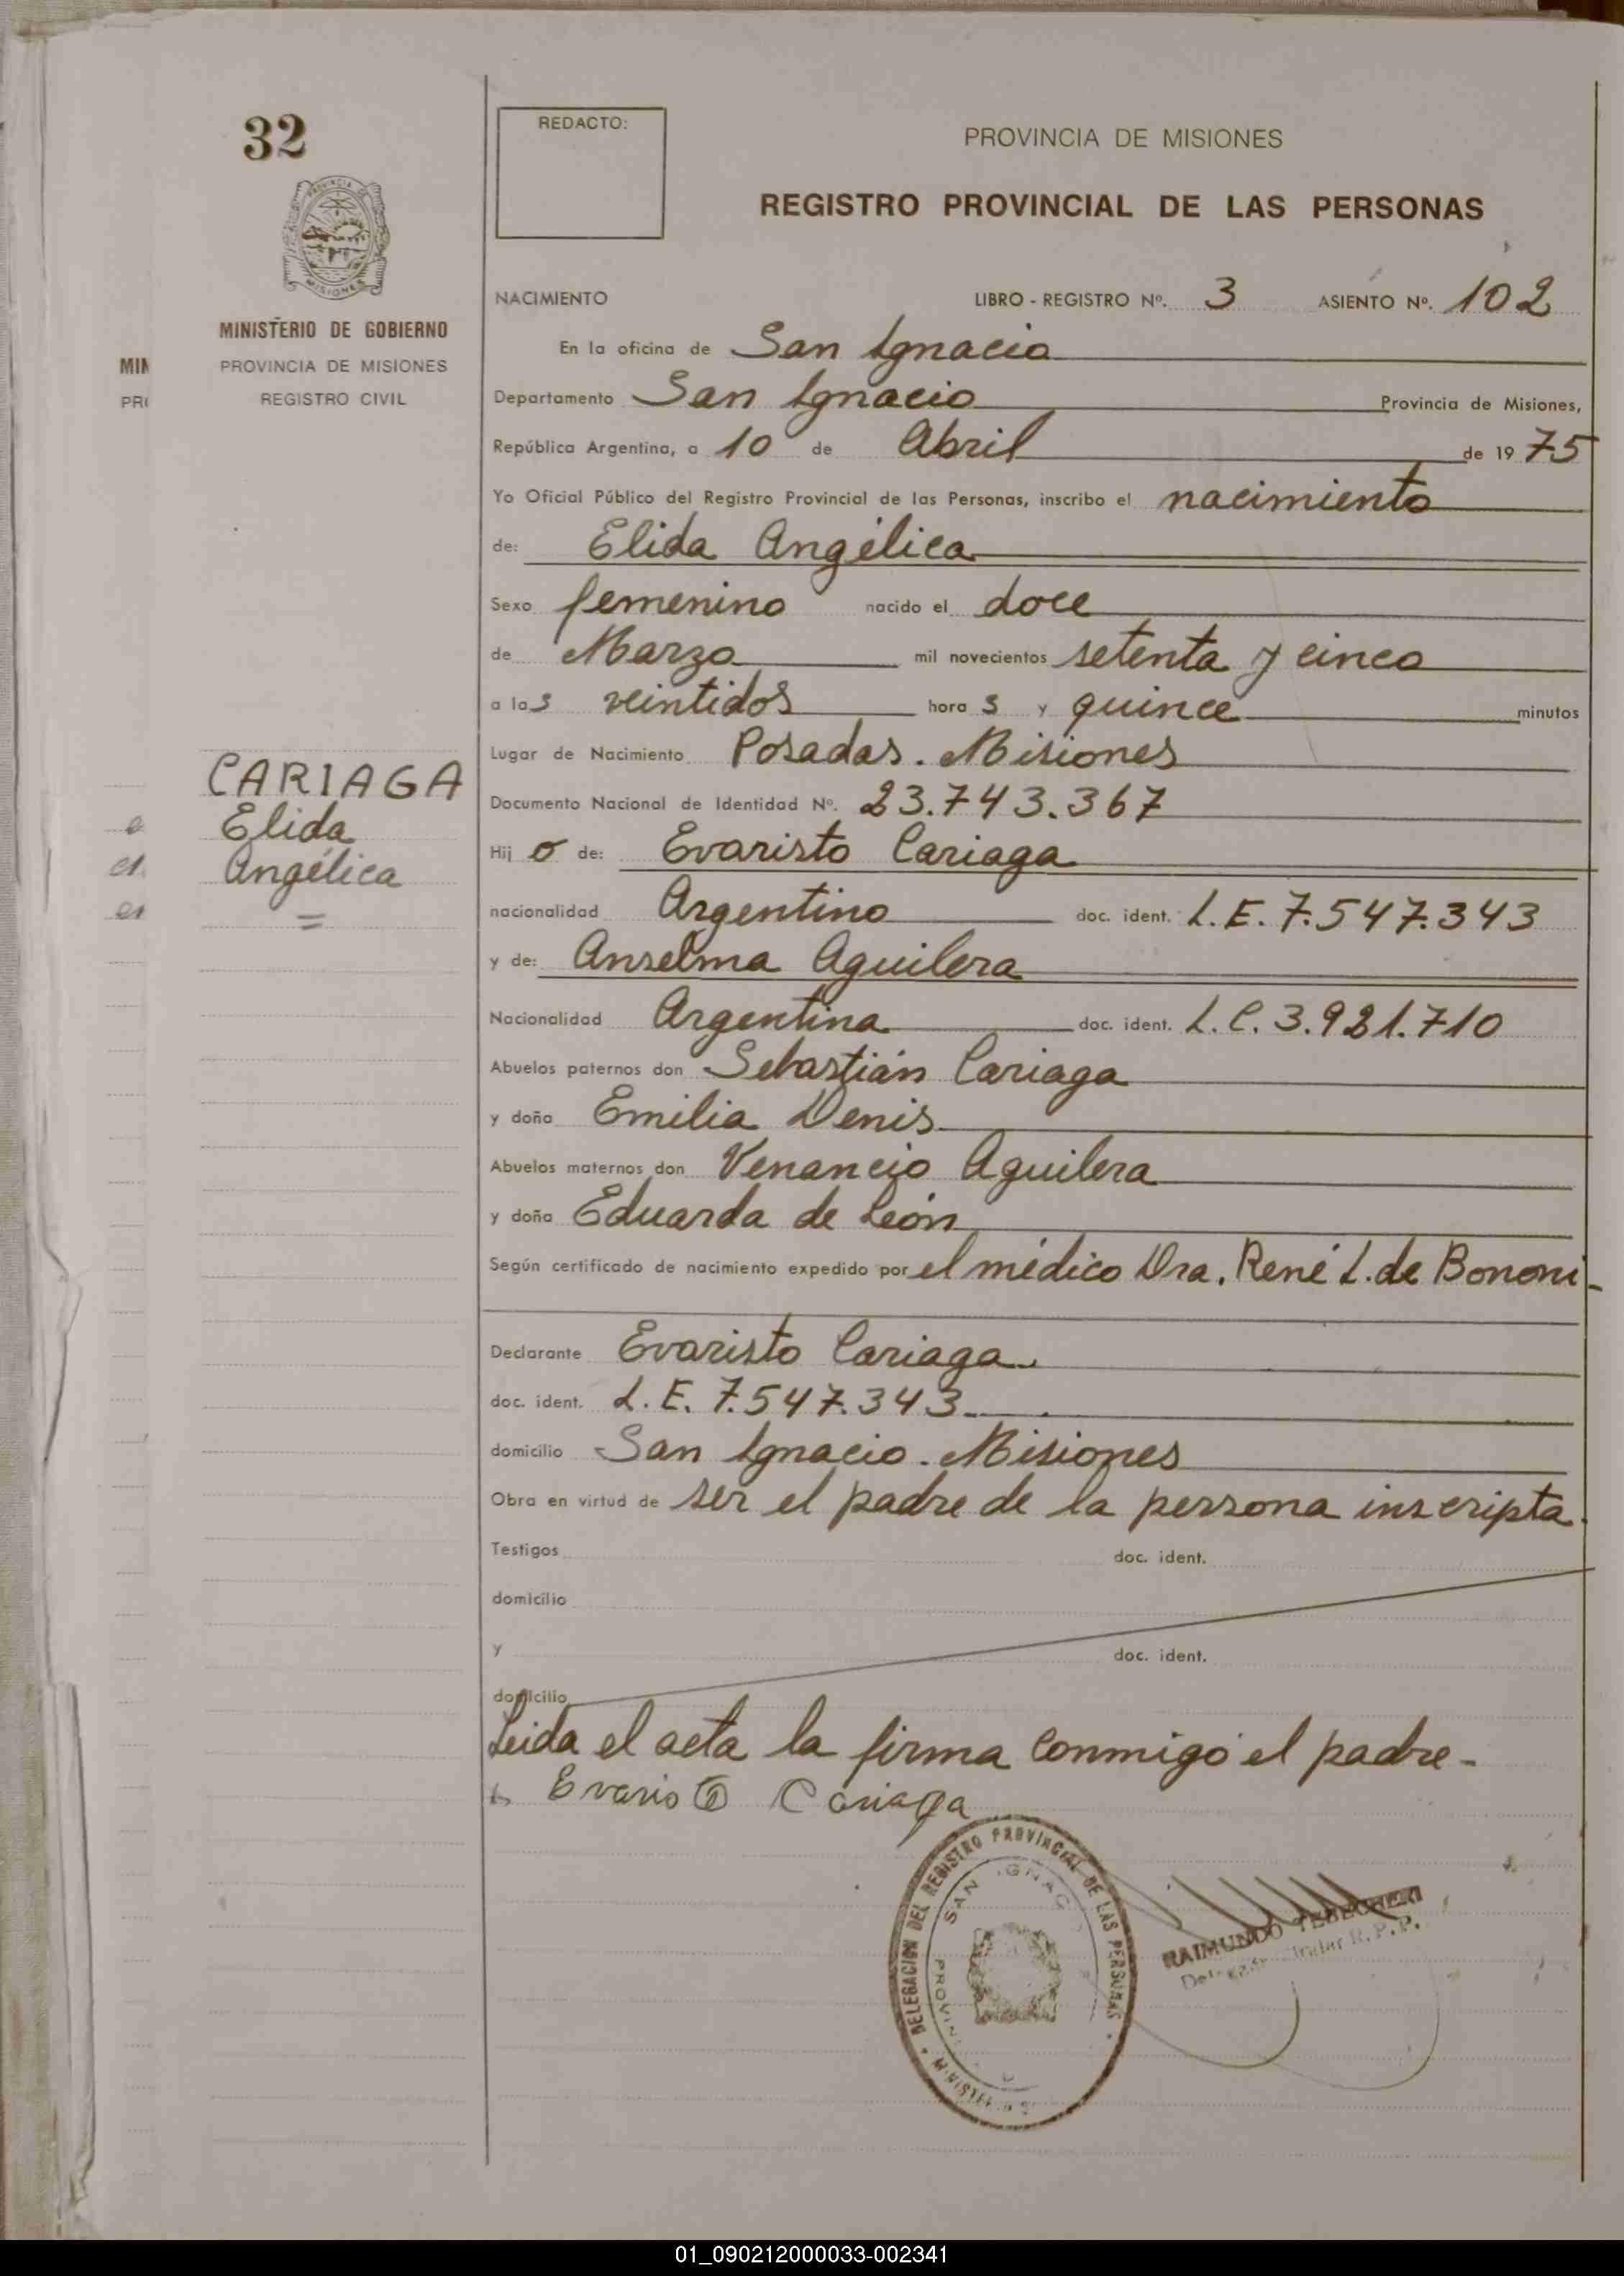 32
REDACTO:
PROVINCIA DE MISIONES
REGISTRO PROVINCIAL DE LAS PERSONAS
PROVINCIA DE
MISIONES
MINISTERIO DE GOBIERNO
PROVINCIA DE MISIONES
REGISTRO CIVIL
MIN
PR
NACIMIENTO LIBRO - REGISTRO Nº. 3 ASIENTO Nº. 102
En la oficina de San Ignacio
Departamento San Ignacio Provincia de Misiones,
República Argentina, a 10 de Abril de 1975
Yo Oficial Público del Registro Provincial de las Personas, inscribo el nacimiento
de: Elida Angélica
Sexo femenino nacido el doce
de Marzo mil novecientos setenta y cinco
a las veintidos horas y quince minutos
Lugar de Nacimiento Posadas. Misiones
CARIAGA
Elida
Angélica
=
Documento Nacional de Identidad Nº. 23.743.367
Hij o de: Evaristo Cariaga
nacionalidad Argentino doc. ident. L.E. 7.547.343
y de: Anselma Aguilera
Nacionalidad Argentina doc. ident. L.C. 3.921.710
Abuelos paternos don Sebastián Cariaga
y doña Emilia Denis
Abuelos maternos don Venancio Aguilera
y doña Eduarda de León
Según certificado de nacimiento expedido por el médico Dra. René L. de Bononi-
Declarante Evaristo Cariaga.
doc. ident. L.E. 7.547.343.
domicilio San Ignacio. Misiones
Obra en virtud de ser el padre de la persona inscripta.
Testigos doc. ident.
domicilio
y doc. ident.
domicilio
Leida el acta la firma conmigo el padre-
Evaristo Cariaga
DELEGACION DEL REGISTRO PROVINCIAL DE LAS PERSONAS
SAN IGNAC
RAIMUNDO
R.P.P.
01_090212000033-002341